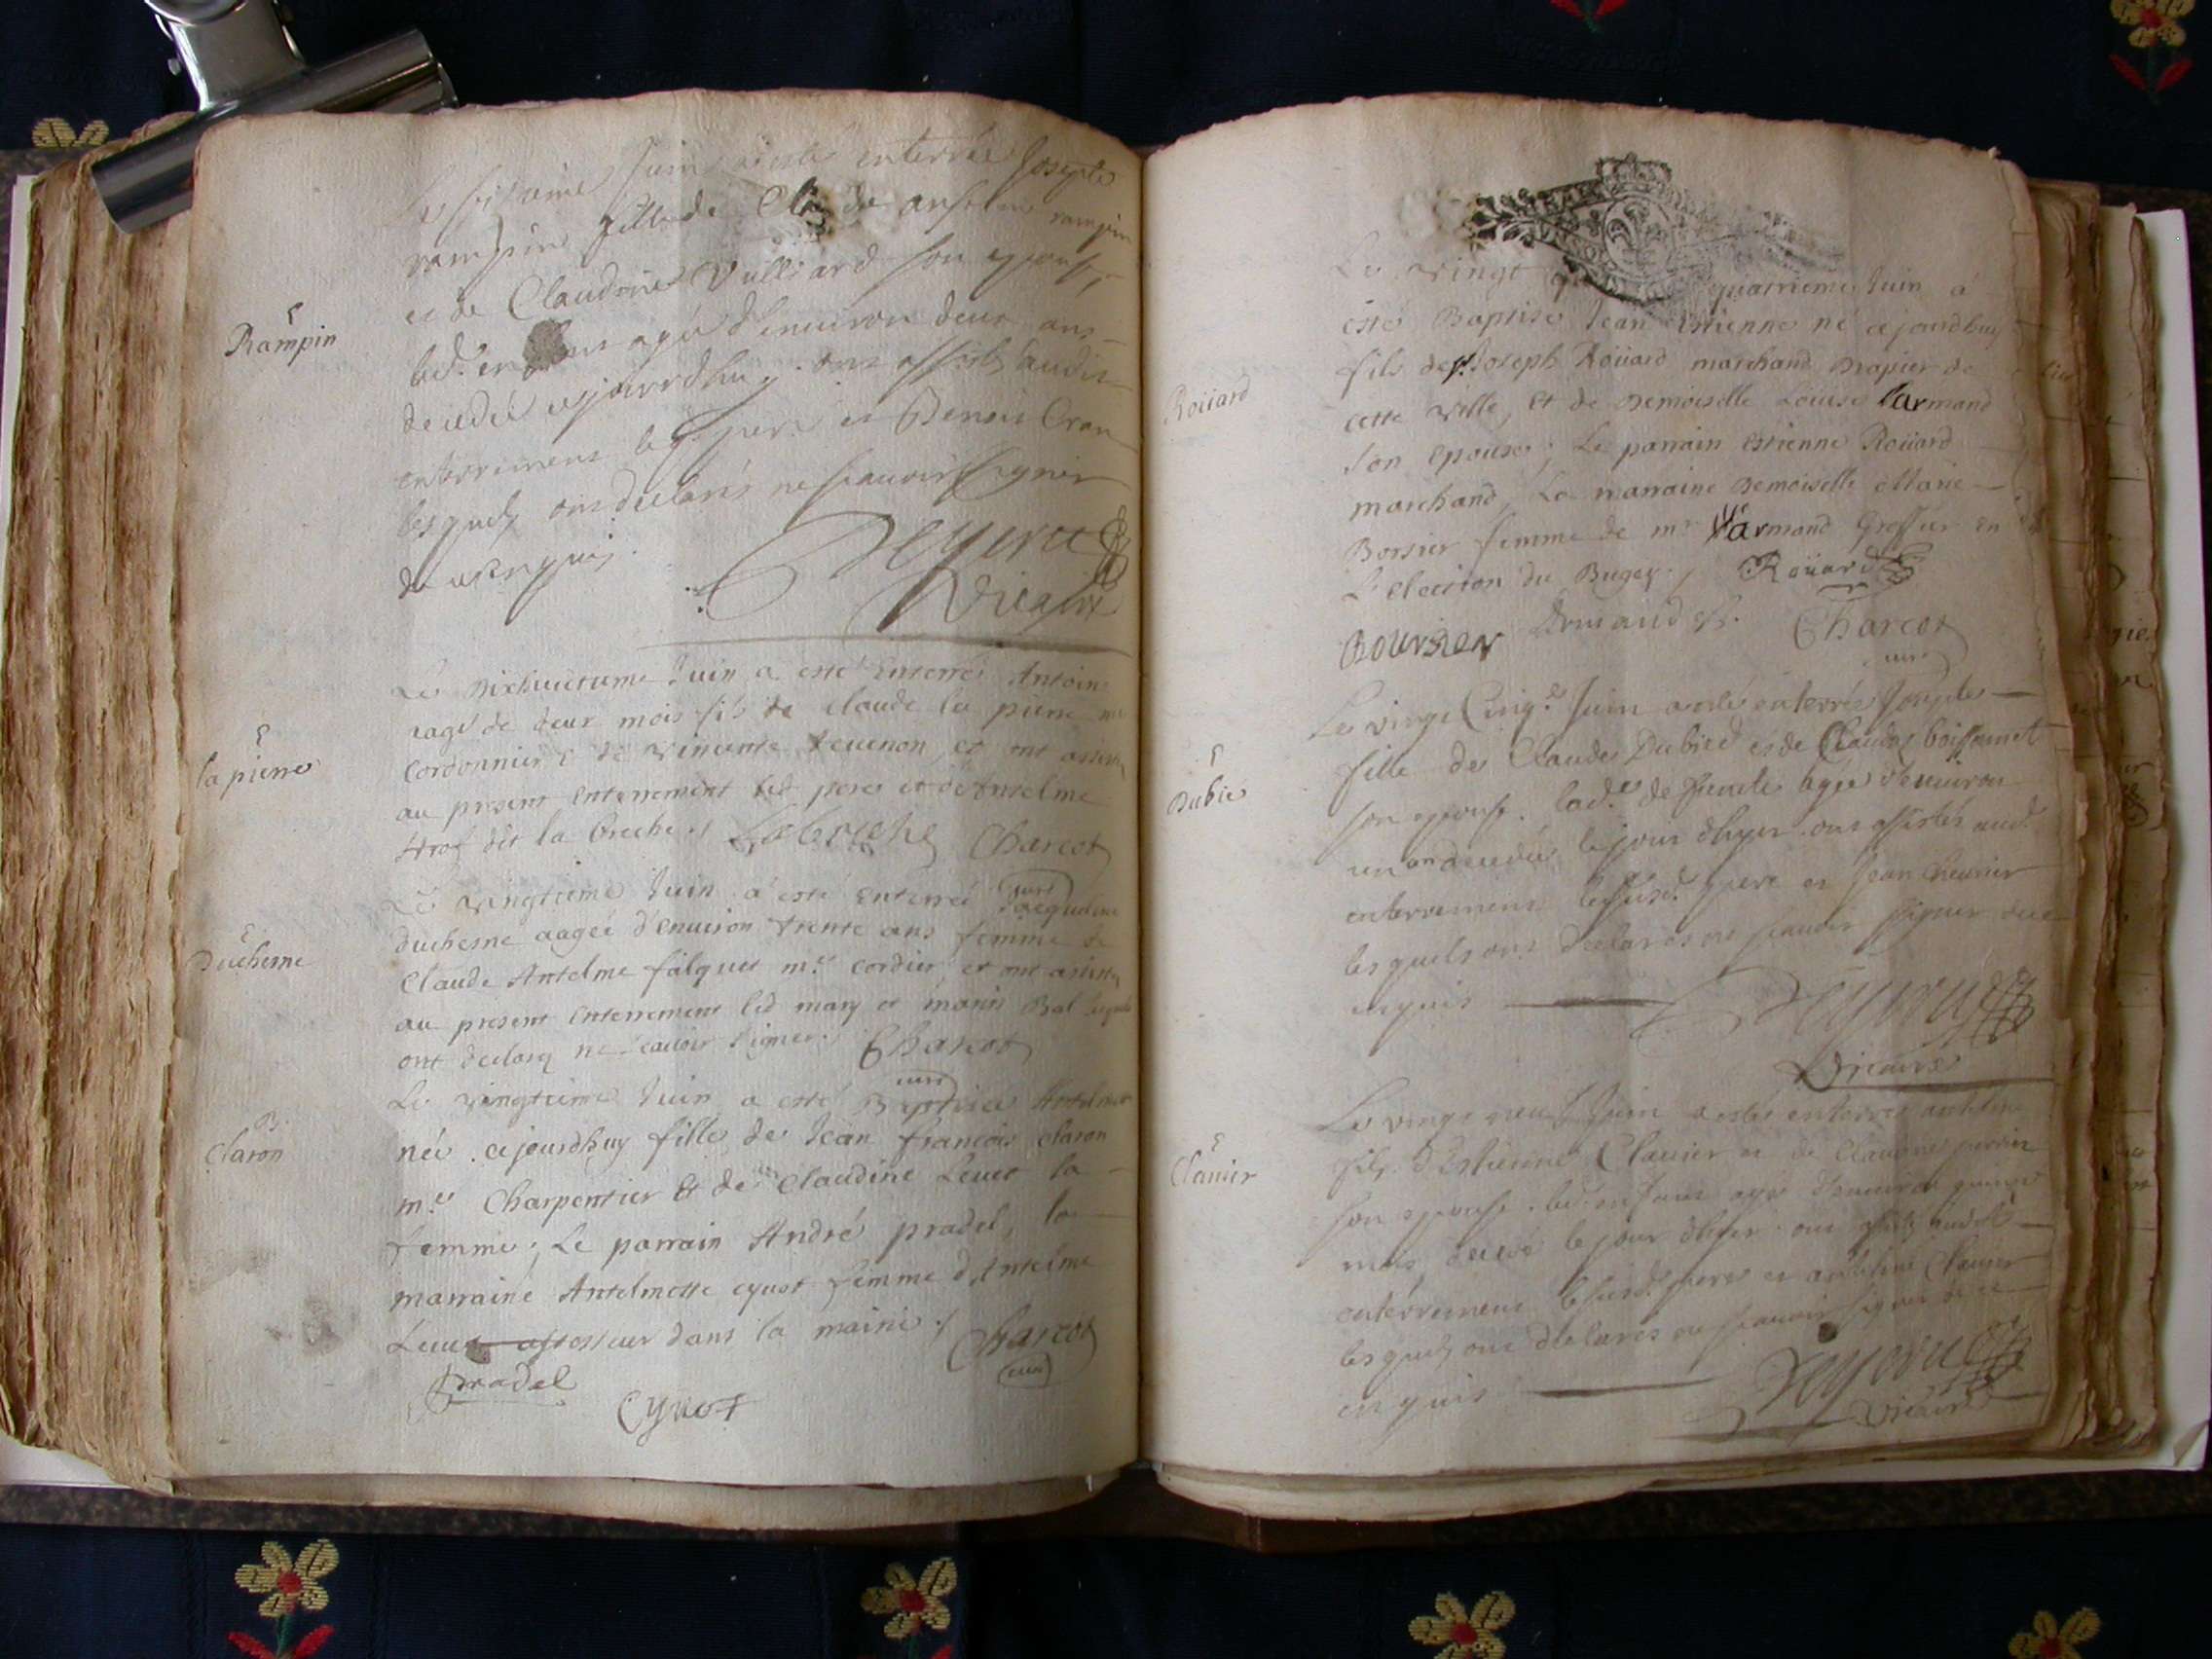 Rampin
Juin a esté enterrée Josepte
rampin fille de Claude anselme rampin
et de Claudine Vulliard son epouse,
led. enfant agée d'environ deux ans
decedée cejourdhuy. ont assisté audit
enterrement led. pere et Benoit Cran
lesquels ont declarés ne scauoir signer
de ce enquis.
Vicaire
la pierre
Le Dixhuictieme Juin a esté Enterré Antoine
aagé de deux mois fils de Claude la pierre me
Cordonnier & de Vincente teuenon, et ont assisté
au present Enterrement led pere et Antelme
dit la breche ./. Labreche Charcot
curé
Ducherne
Le vingtieme Juin a esté Enterrée Jacqueline
ducherne aagée d'enuiron trente ans femme de
Claude Antelme falquet me cordier, et ont assisté
au present Enterrement led mary et Bal lesquels
ont declaré ne scauoir signer. Charcot
curé
B
Claron
Le vingtieme Juin a esté Baptisée Antelmette
née cejourdhuy fille de Jean françois Claron
me Charpentier et de Claudine Leuet la
femme ; Le parrain André pradel, la
marraine Antelmette cyuot femme d'Antelme
Leuet assesseur dans la mairie ./. Charcot
curé
Pradel
Cyuot
Roüard
Le vingt quatrieme Juin a
esté Baptisé Jean Estienne né cejourdhuy
fils de Sr Joseph Roüard marchand Drapier de
cette ville, et de Demoiselle Loüise
son epouse ; Le parrain Estienne Roüard
marchand, La marraine Demoiselle Marie
Borsier femme de mr Greffier en
L'election du Bugey ./. Roüard
Boursier Charcot
curé
Dubié
Le vingt Cinq.e Juin a esté enterrée Josepte
fille de Claude Dubied et de Claude boissonet
son epouse. lad.e defuncte agée d'enuiron
un an decedée le jour d'hyer. ont assistés aud.
enterrement le susd. pere et Jean
lesquels ont declarés ne scauoir signer de ce
enquis
Vicaire
Clauier
Le vingt neuf Juin a esté enterré anthelme
fils d'Estienne Clauier et de Claudine perrin
son epouse. led. enfant agé d'enuiron quinze
mois decedé le jour d'hyer. ont assistés audit
enterrement le susd. pere et anthelme Clauier
lesquels ont declarés ne scauoir signer de ce
enquis
Vicaire